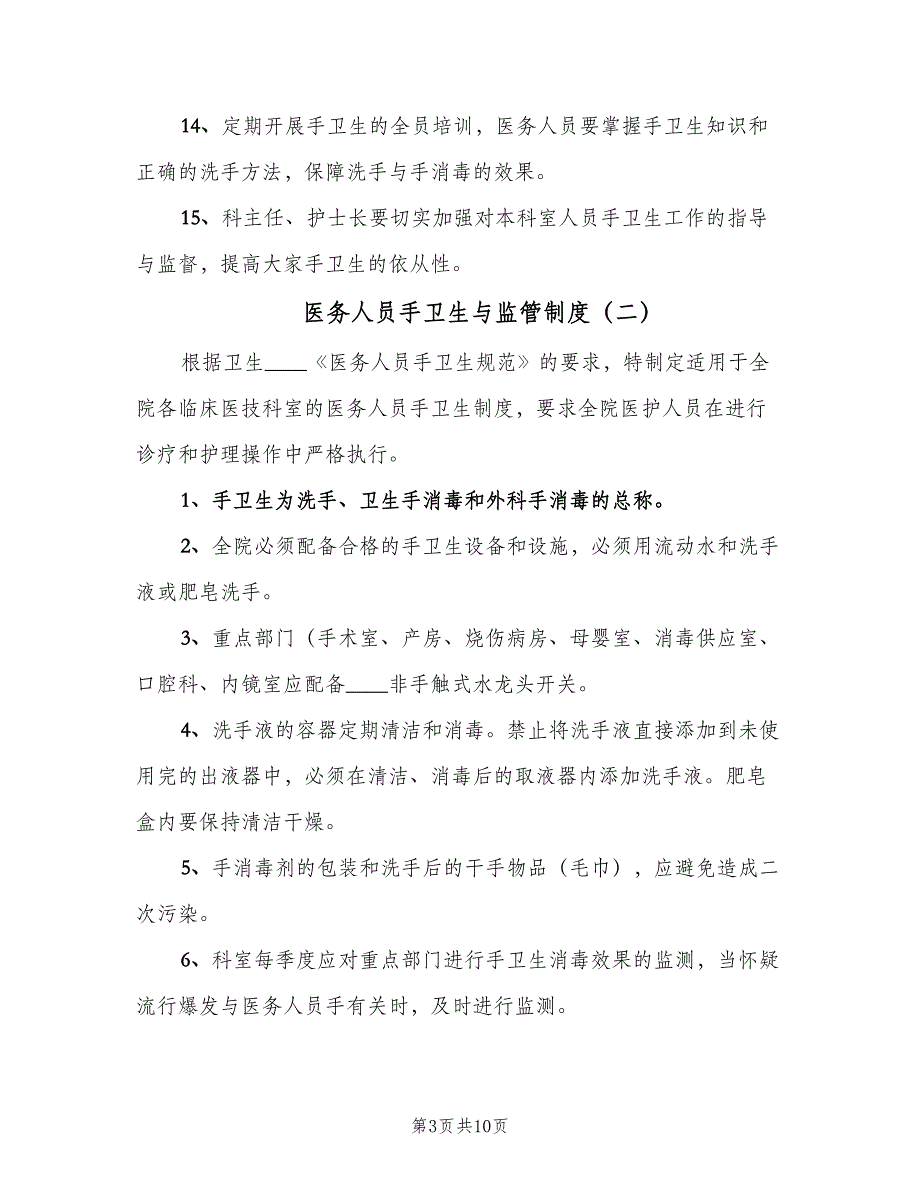 14、定期开展手卫生的全员培训，医务人员要掌握手卫生知识和
正确的洗手方法，保障洗手与手消毒的效果。
15、科主任、护士长要切实加强对本科室人员手卫生工作的指导
与监督，提高大家手卫生的依从性。
医务人员手卫生与监管制度（二）
根据卫生____《医务人员手卫生规范》的要求，特制定适用于全
院各临床医技科室的医务人员手卫生制度，要求全院医护人员在进行
诊疗和护理操作中严格执行。
1、手卫生为洗手、卫生手消毒和外科手消毒的总称。
2、全院必须配备合格的手卫生设备和设施，必须用流动水和洗手
液或肥皂洗手。
3、重点部门（手术室、产房、烧伤病房、母婴室、消毒供应室、
口腔科、内镜室应配备____非手触式水龙头开关。
4、洗手液的容器定期清洁和消毒。禁止将洗手液直接添加到未使
用完的出液器中，必须在清洁、消毒后的取液器内添加洗手液。肥皂
盒内要保持清洁干燥。
5、手消毒剂的包装和洗手后的干手物品（毛巾），应避免造成二
次污染。
6、科室每季度应对重点部门进行手卫生消毒效果的监测，当怀疑
流行爆发与医务人员手有关时，及时进行监测。
第3页共10页